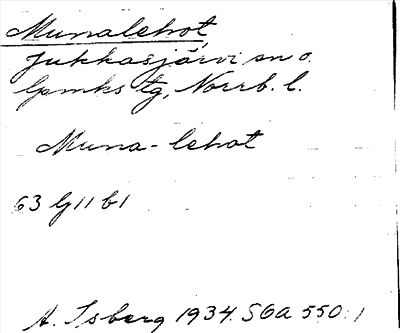 Munalehot,
Jukkasjärvi sn o.
lpmks tg, Norrb. l.
Muna-lehot
63 G 11 b 1
A. Isberg 1934. S6a 550:1